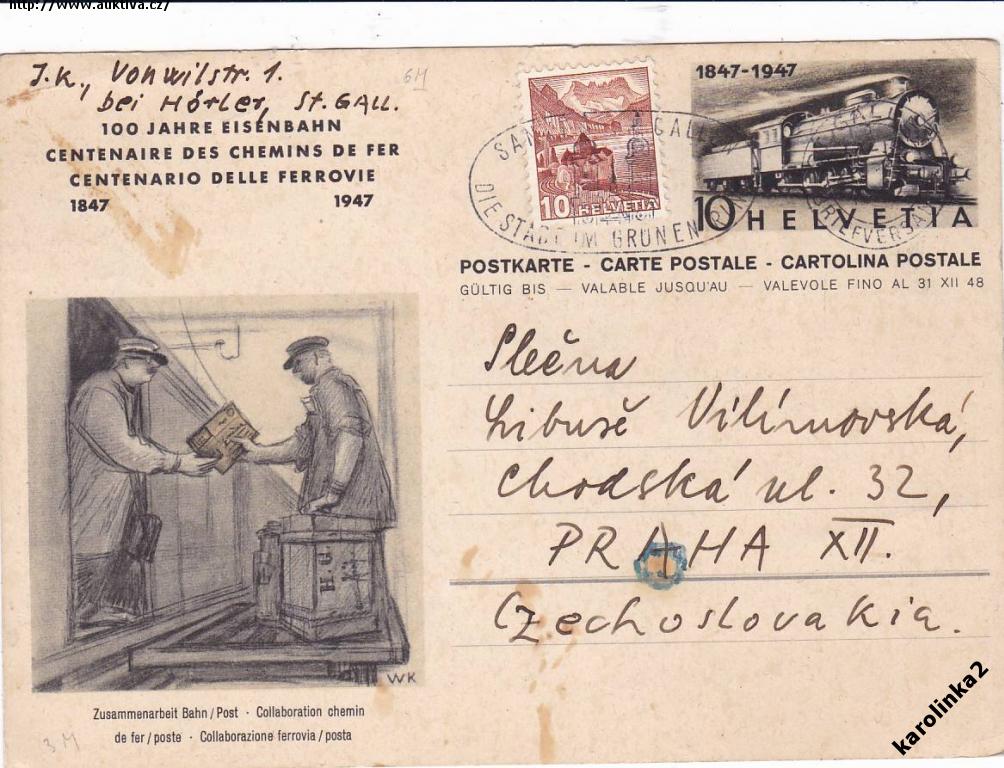 http://www.auktiva.cz/
J.K., Vonwilstr. 1.
bei Hörler, St. GALL.
6M
100 JAHRE EISENBAHN
CENTENAIRE DES CHEMINS DE FER
CENTENARIO DELLE FERROVIE
1847 1947
10 HELVETIA
DIE STADT IM GRÜNEN
1847-1947
10 HELVETIA
BRIEFVERSAND
POSTKARTE - CARTE POSTALE - CARTOLINA POSTALE
GÜLTIG BIS — VALABLE JUSQU'AU — VALEVOLE FINO AL 31 XII 48
Slečna
Libuše Vilímovská,
Chodská ul. 32,
PRAHA XII.
Czechoslovakia.
H.G
WK
Zusammenarbeit Bahn/Post · Collaboration chemin
de fer/poste · Collaborazione ferrovia/posta
3M
karolinka2